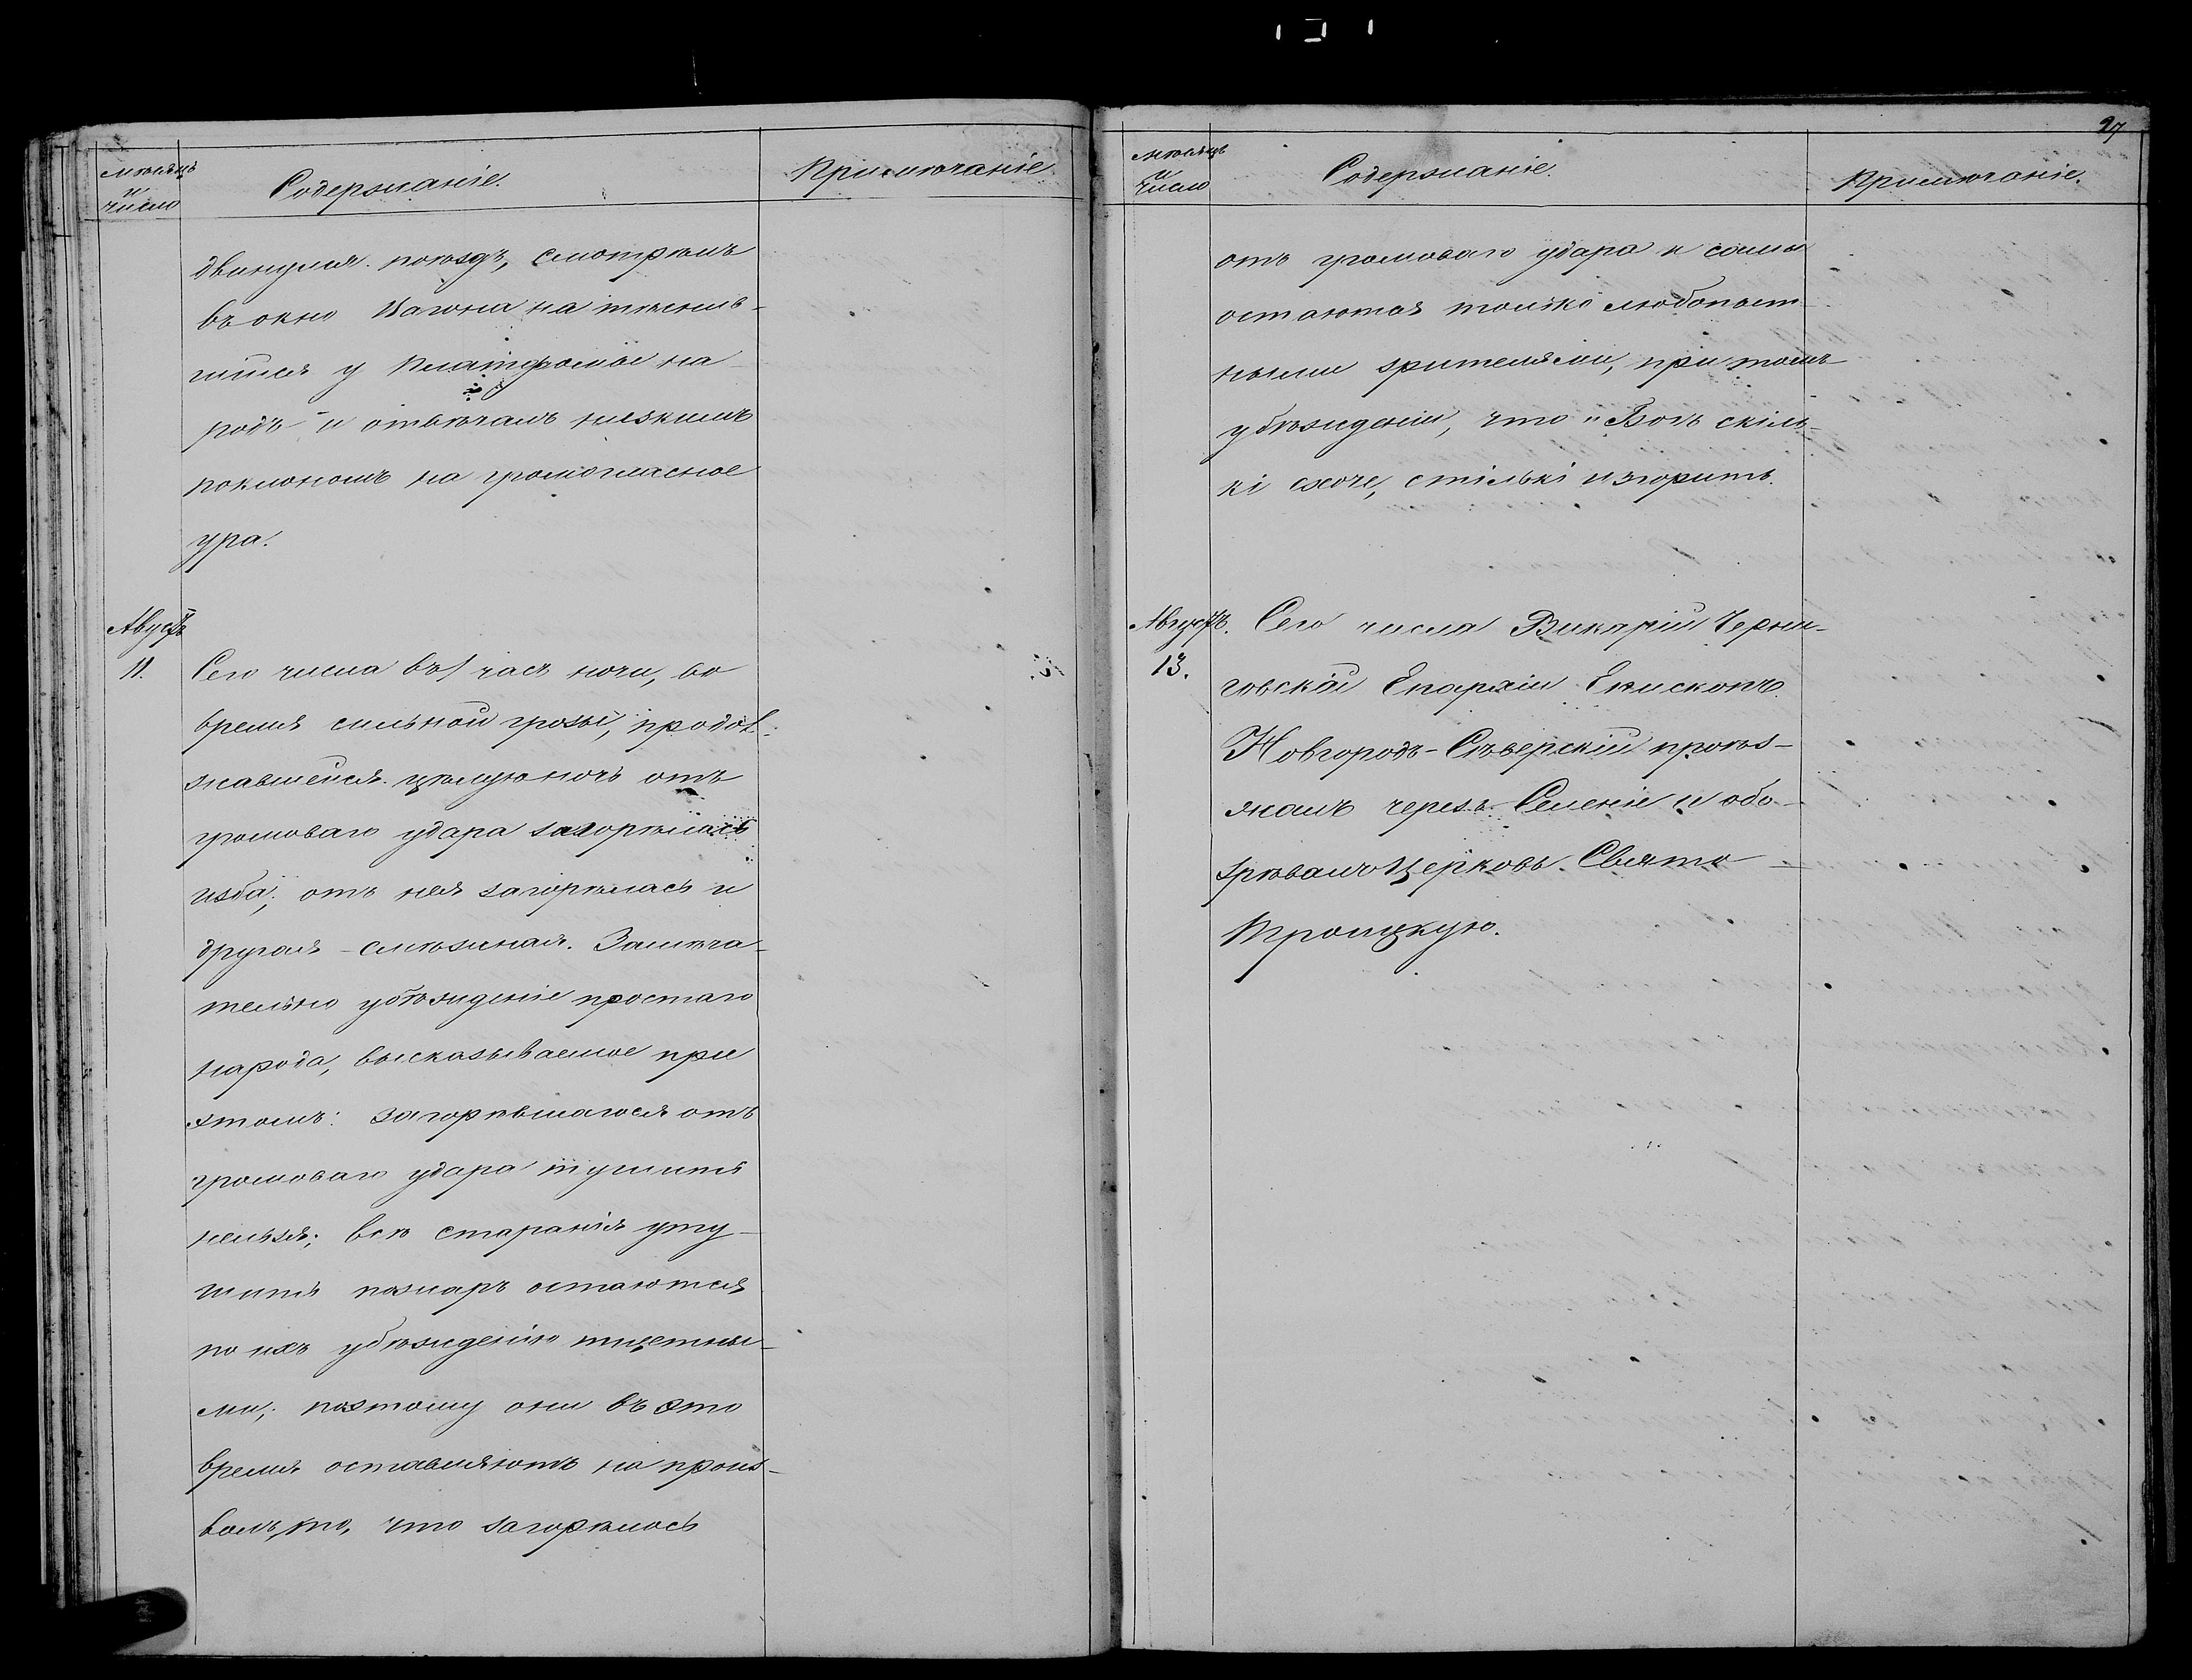 Мѣсяцъ
и
число
Содержаніе.
Примѣчаніе
двинулся поѣздъ, смотрѣлъ
въ окно Вагона на тѣснив-
шійся у Платформы на-
родъ и отвѣчалъ низкимъ
поклономъ на громогласное
ура.
Августъ
11.
Сего числа въ 1 часъ ночи, во
время сильной грозы, продол-
жавшейся цѣлую ночь отъ
громоваго удара загорѣлась
изба; отъ нея загорѣлась и
другая - смѣжная. Замѣча-
тельно убѣжденіе простаго
народа, высказываемое при
этомъ: загорѣвшагося отъ
громоваго удара тушить
нельзя; всѣ старанія уту-
шить пожаръ остаются,
по ихъ убѣжденію тщетны-
ми; поэтому они въ это
время оставляютъ на произ-
волъ то, что загорѣлось
27
Мѣсяцъ
и
число
Содержаніе.
Примѣчаніе.
отъ громоваго удара и сами
остаются только любопыт-
ными зрителями, при томъ
убѣжденіи, что "Богъ скіль-
кі схоче, стількі изгорить.
Августъ.
13.
Сего числа Викарій Черни-
говскій Епархіи Епископъ
Новгородъ-Сѣверскій проѣз-
жалъ черезъ Селеніе и обо-
зрѣвалъ Церковь Свято-
Троицкую.